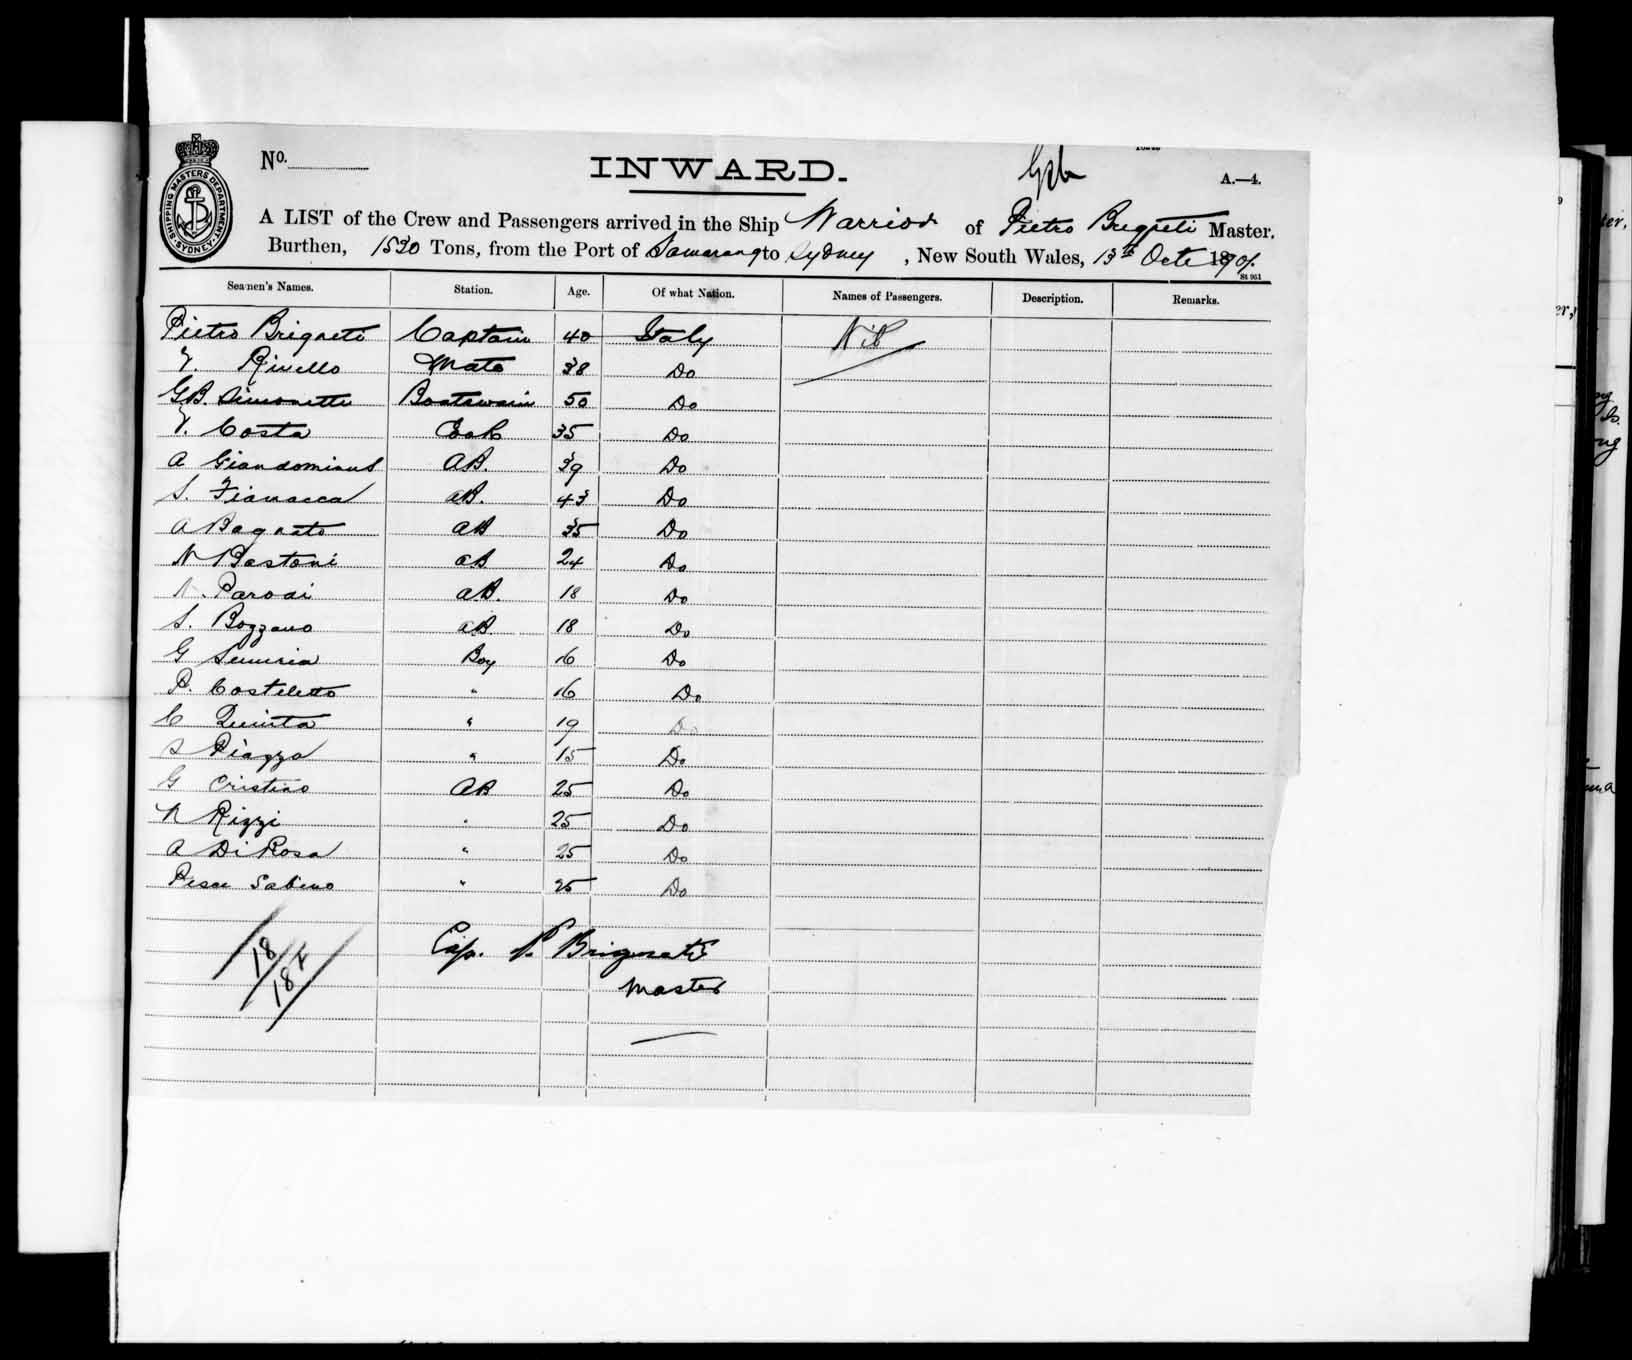 SHIPPING MASTERS DEPARTMENT. SYDNEY.
No. INWARD. A.—4.
A LIST of the Crew and Passengers arrived in the Ship Warrior of Pietro Brigneti Master.
Burthen, 1520 Tons, from the Port of Samarang to Sydney, New South Wales, 13th Octr 1901.
St 951
Seamen's Names. Station. Age. Of what Nation. Names of Passengers. Description. Remarks.
Pietro Brigneti Captain 40 Italy Nil
Rivello Mate 38 Do
G.B. Simonetti Boatswain 50 Do
Costa Cook 35 Do
A Giandomians AB. 39 Do
S. Fianacca AB. 43 Do
A Bagnato AB 35 Do
N Bastoni AB 24 Do
N. Parodi AB. 18 Do
S. Bozzano AB. 18 Do
G Semiria Boy 16 Do
P. Costeletto " 16 Do
C Quinta " 19 Do
S Piazza " 15 Do
G Cristino AB 25 Do
N Rizzi " 25 Do
A Di Rosa " 25 Do
Pesce Sabino " 25 Do
18
18
Cap. P. Brigneti
Master